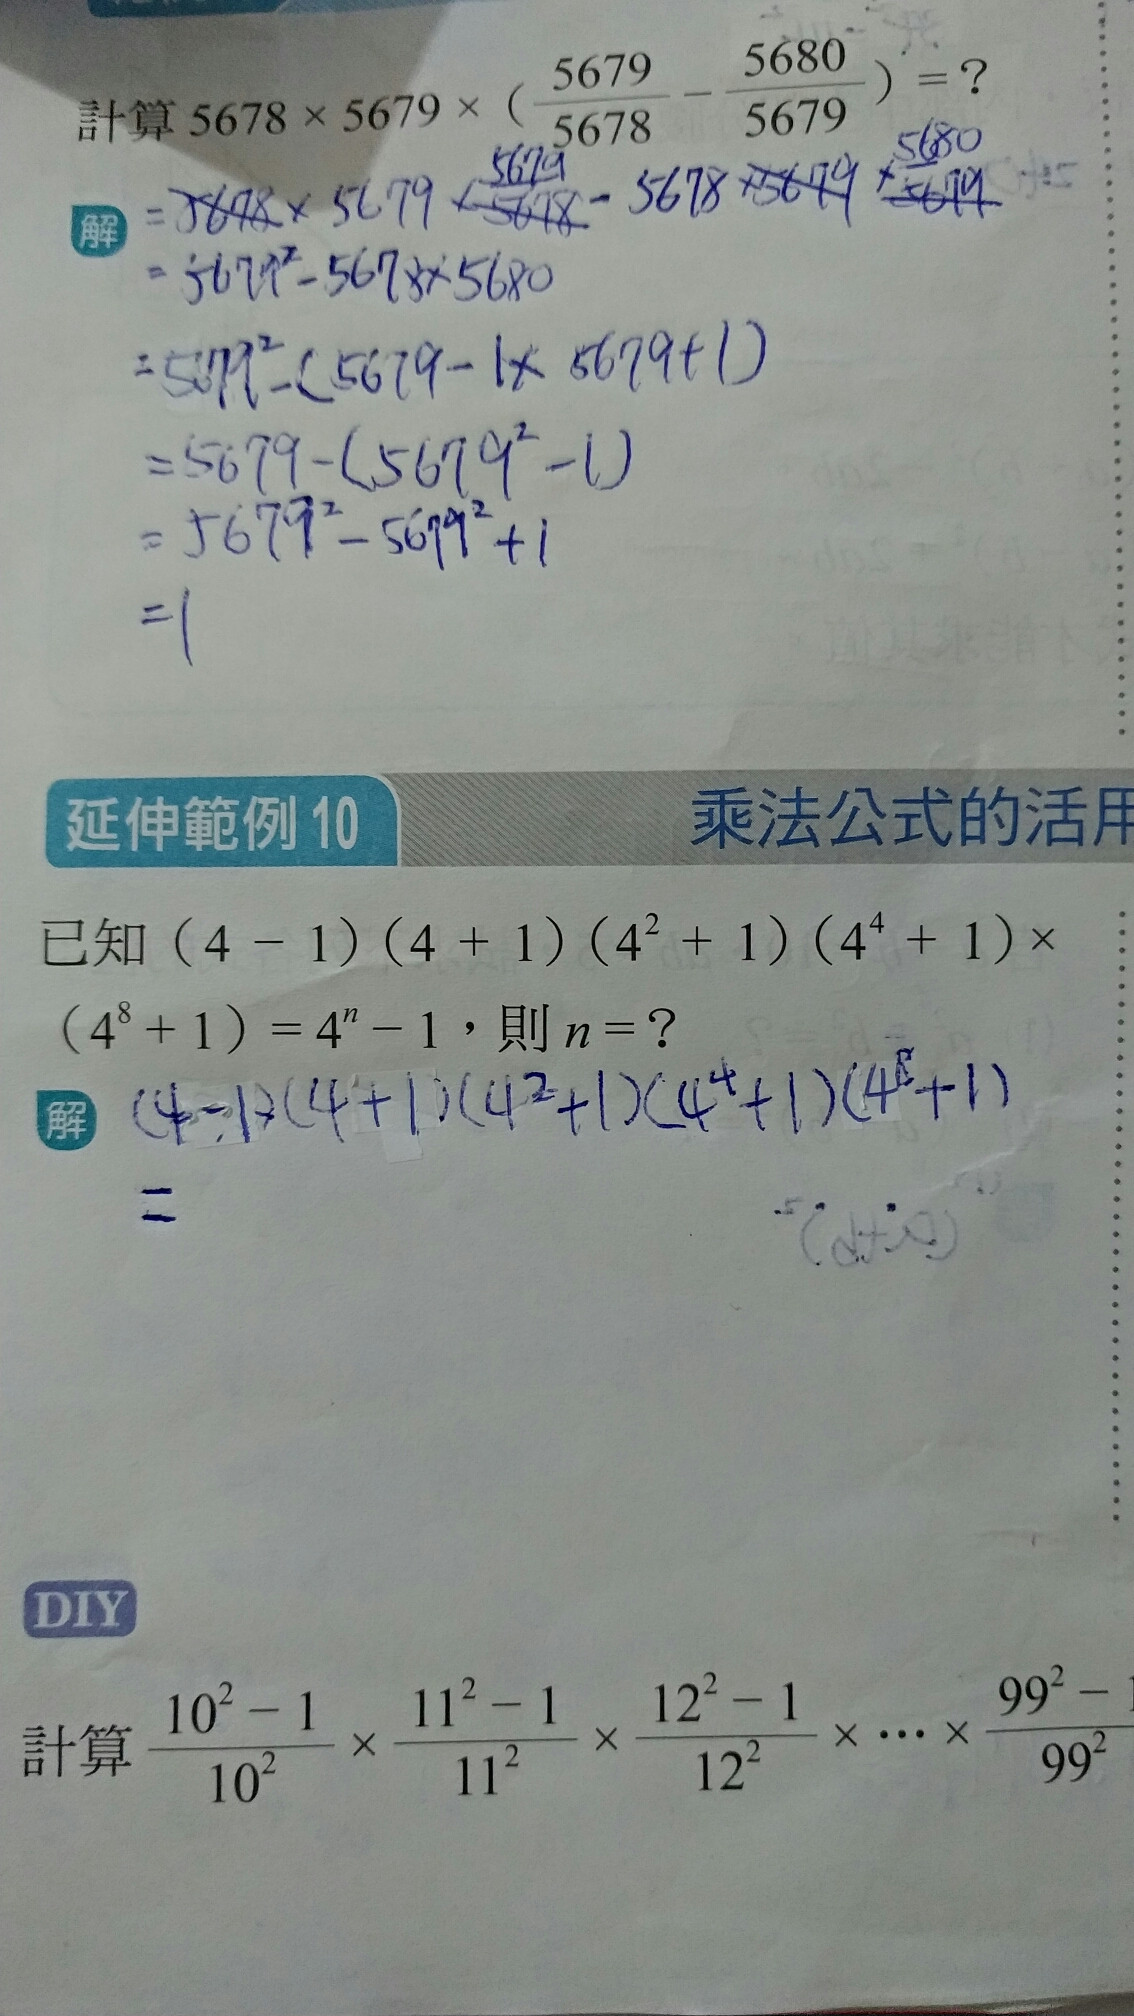 計算 5678 × 5679 × ( 5679/5678 − 5680/5679 ) = ?
解 = 5678 × 5679 × 5679/5678 - 5678 × 5679 × 5680/5679
= 5679² - 5678 × 5680
= 5679² - (5679 - 1 × 5679 + 1)
= 5679 - (5679² - 1)
= 5679² - 5679² + 1
= 1
延伸範例 10 乘法公式的活用
已知 ( 4 − 1 ) ( 4 + 1 ) ( 4² + 1 ) ( 4⁴ + 1 ) ×
( 4⁸ + 1 ) = 4ⁿ − 1,則 n = ?
解 (4-1)(4+1)(4²+1)(4⁴+1)(4⁸+1)
=
DIY
計算 10² − 1/10² × 11² − 1/11² × 12² − 1/12² × … × 99² − 1/99²